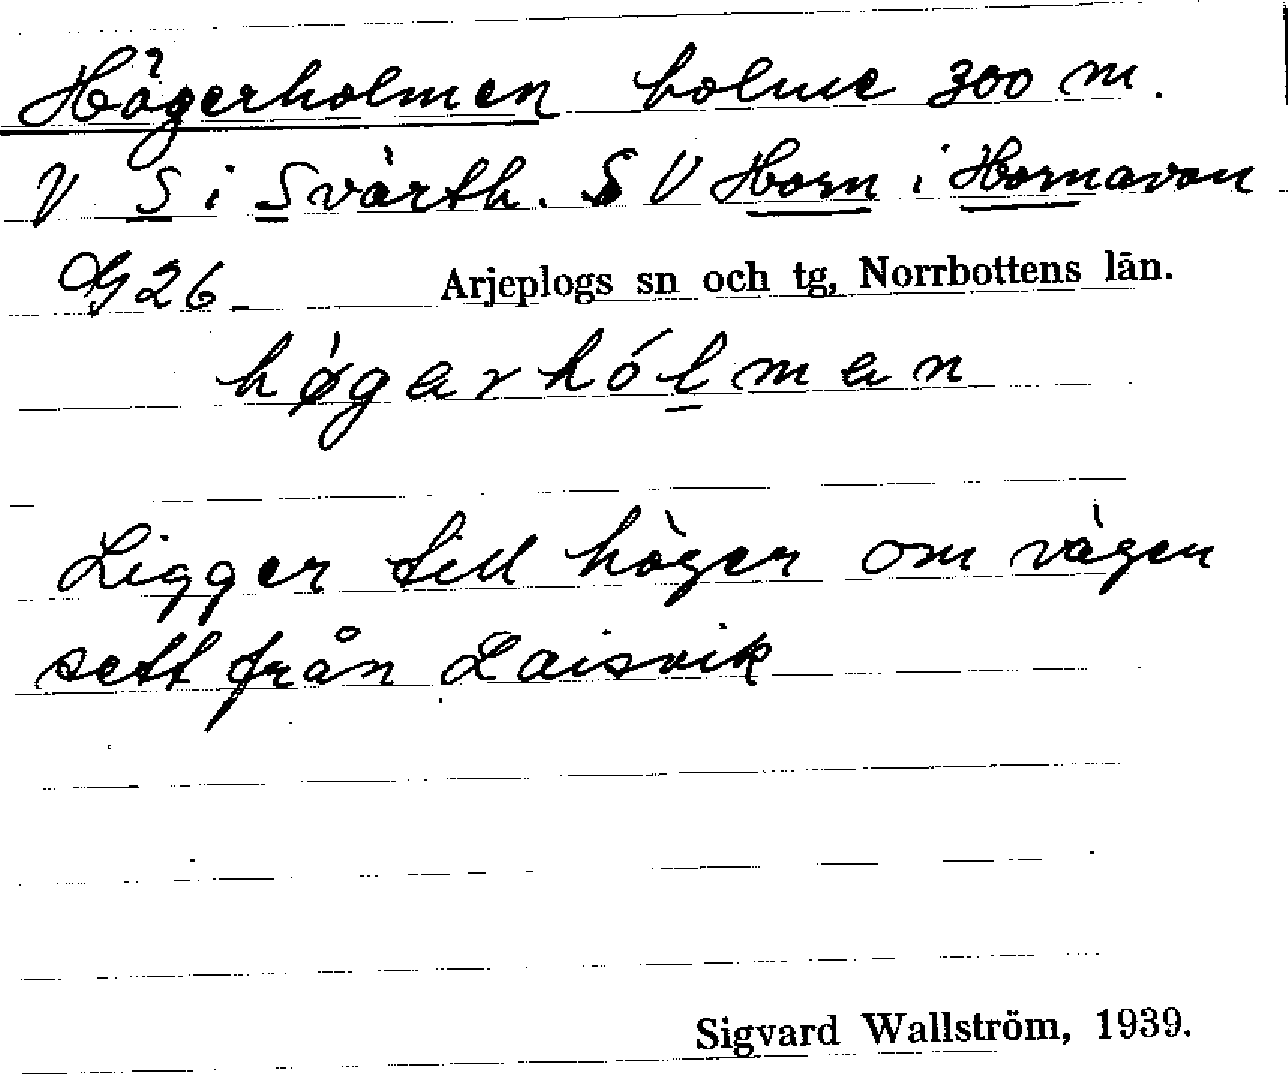 Högerholmen holme 300 m.
V S i Svärth. SV Horn i Hornavan
G26 Arjeplogs sn och tg, Norrbottens län.
høgarhólman
Ligger till höger om vägen
sett från Laisvik
Sigvard Wallström, 1939.